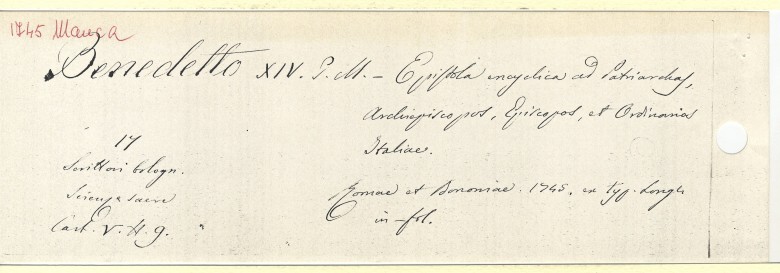 1745 Manca
Benedetto XIV. P. M. - Epistola encyclica ad Patriarchas,
Archiepiscopos, Episcopos, et Ordinarios
Italiae.
Romae et Bononiae. 1745. ex typ. Longhi
in-fol.
17
Scrittori bologn.
Scienze sacre
Cart. V. H. 9.